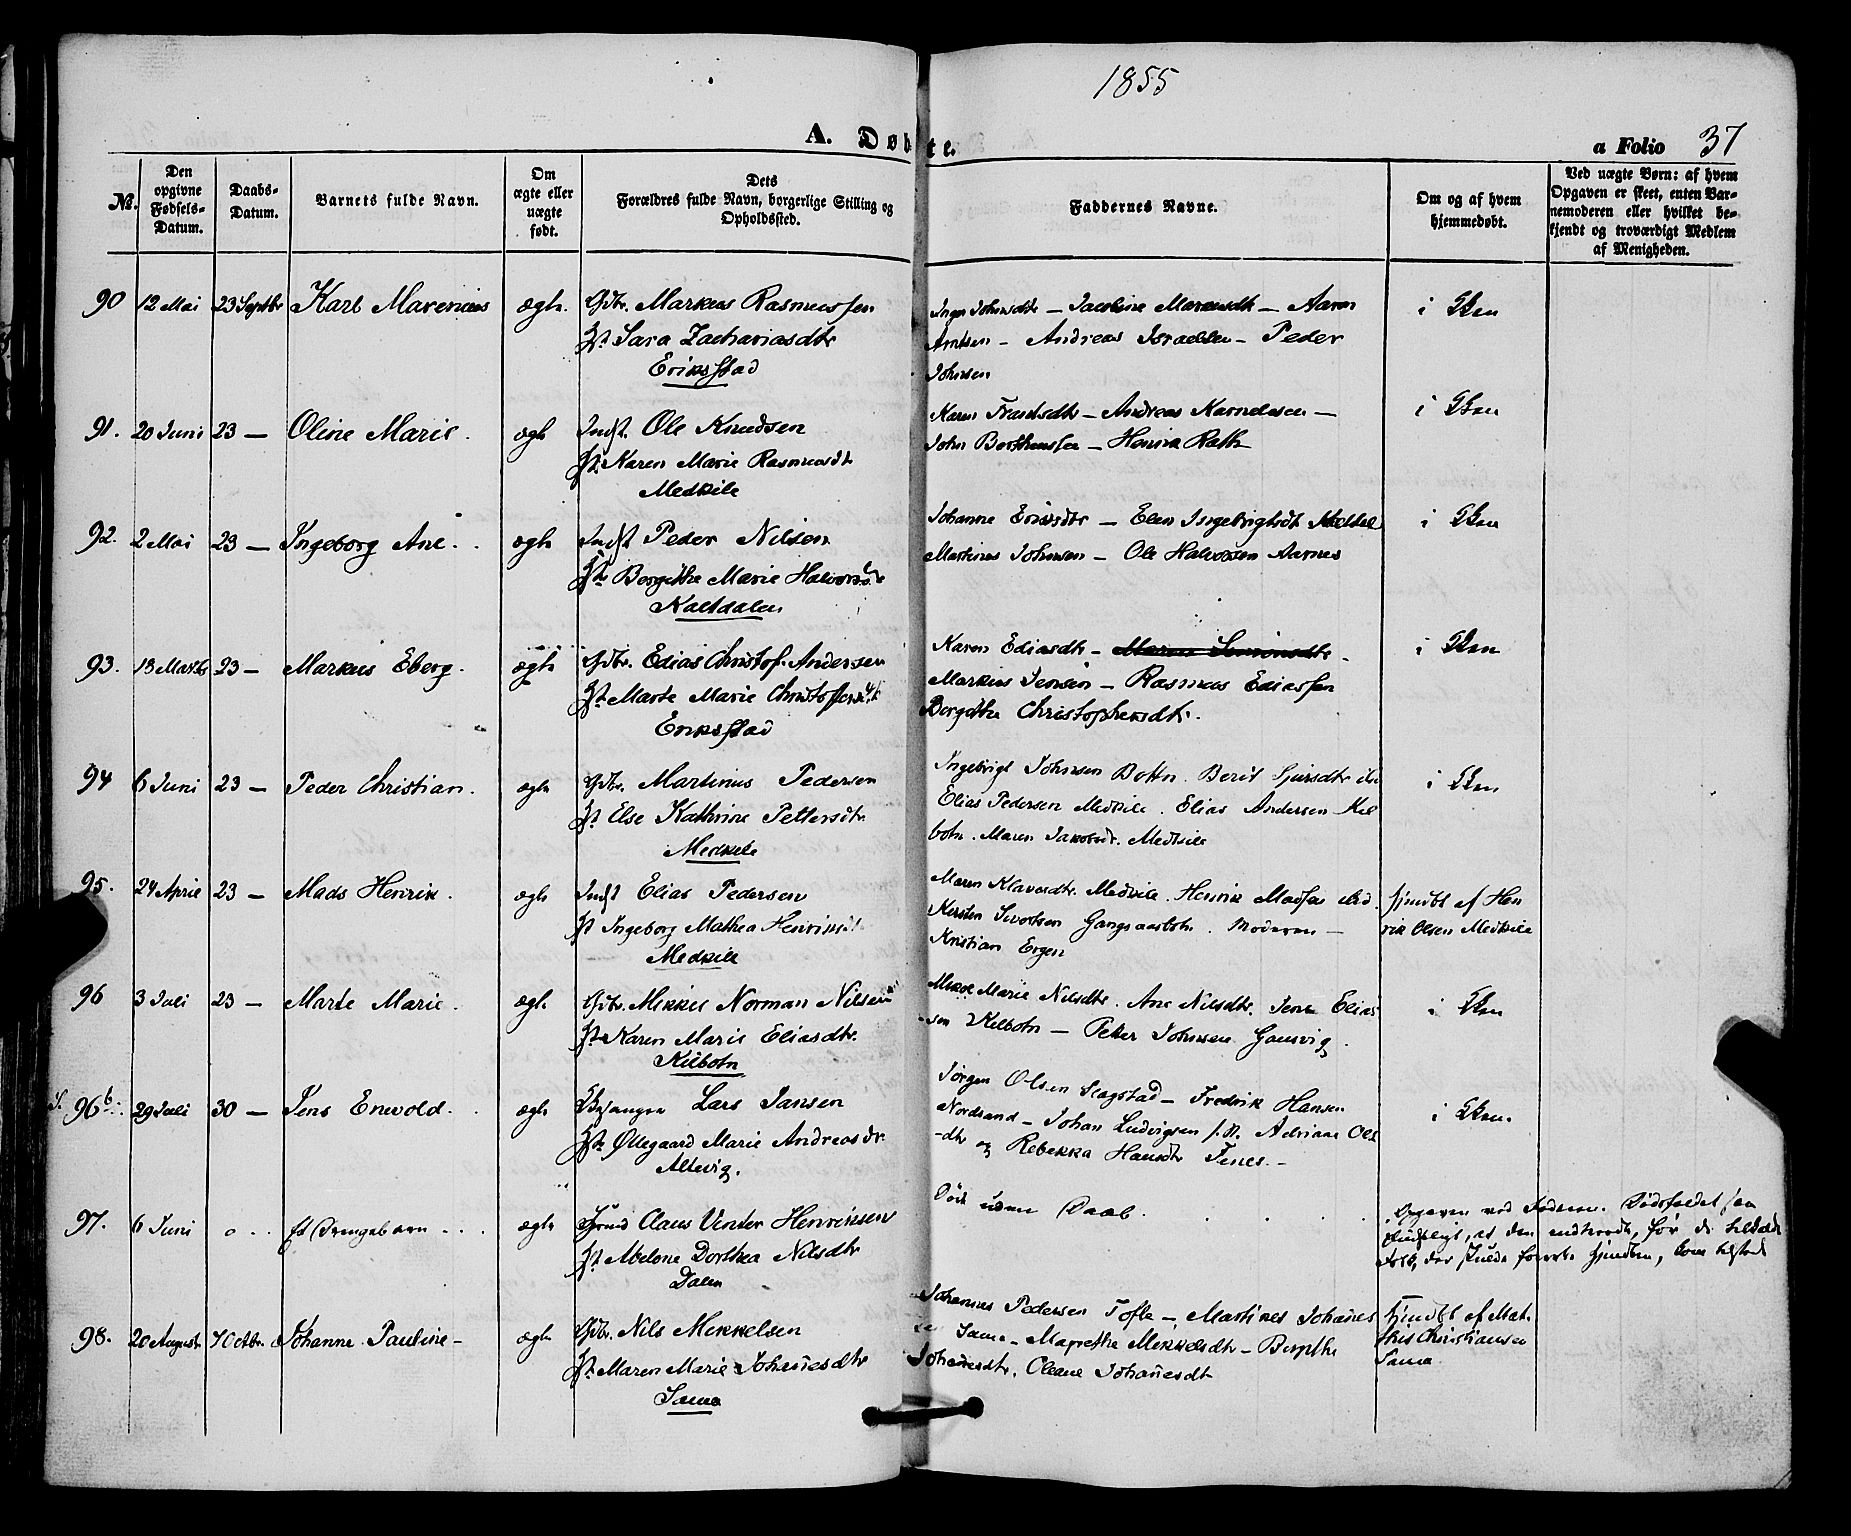 1855
A. Døbte.
a Folio 37
No.
Den opgivne Fødsels-Datum.
Daabs-Datum.
Barnets fulde Navn.
Om ægte eller uægte født.
Dets Forældres fulde Navn, borgerlige Stilling og Opholdssted.
Faddernes Navne.
Om og af hvem hjemmedøbt.
Ved uægte Børn: af hvem Opgaven er skeet, enten Barnemoderen eller hvilket bekjendt og troværdigt Medlem af Menigheden.
90 12 Mai 23 Septbr Karl Marenius ægte Gdbr. Markus Rasmussen
Hst Sara Zachariasdtr
Eriksstad
Inger Johnsdtr — Jacobine Marcusdtr — Aaron
Arntsen — Andreas Israelsen — Peder
Johnsen
i Kken
91. 20 Juni 23 — Oline Marie. ægte Indst. Ole Knudsen
Hst Karen Marie Rasmusdtr
Medkile
Karen Frantsdtr — Andreas Karnelsen —
John Berthensen — Henrik Rath
i Kken
92. 2 Mai 23 — Ingeborg Ane. ægte Indst Peder Nilsen
Hst Borgithe Marie Halvorsdtr
Kaltdalen
Johanne Eriksdtr — Elen Ingebrigtsdt
Martines Johnsen — Ole Halvorsen Aarnes
i Kken
93. 13 Marts 23 — Markus Eberg. ægte Gdbr. Edias Christof. Andersen
Hst Marte Marie Christoffersdt
Eriksstad
Karen Ediasdtr — Maren Simonsdtr —
Markus Jensen — Rasmus Ediassen
Borgithe Christophersdtr.
i Kken
94 6 Juni 23 — Peder Christian. ægte Gdbr. Martinus Pedersen
Hst Else Kathrine Pettersdtr.
Medkile
Ingebrigt Johnsen Botn. Berit Sjursdtr ibd
Elias Pedersen Medkile. Elias Andersen Kil
botn. Maren Jakobsdtr. Medkile
i Kken
95. 24 April 23 — Mads Henrik. ægte Indst Elias Pedersen
Hst Ingeborg Mathea Henriksdt
Medkile
Maren Klausdtr. Medkile. Henrik Madsen ibd.
Kersten Sivertsen Gangsaasbotn. Moderen —
Kristian Ergen
hjmdbt af Hen
rik Olsen Medkile
96 3 Juli 23 — Marte Marie. ægte Gdbr. Mikkel Norman Nilsen
Hst Karen Marie Eliasdtr.
Kilbotn
Marie Nilsdtr. Ane Nilsdtr. Jens Elias
sen Kilbotn — Peter Johnsen Gausvig.
i Kken
96 b. 29 Juli 30 — Jens Enevold. ægte Lars Jansen
Hst Øllegaard Marie Andreasdr.
Altevig.
Jørgen Olsen Slagstad — Fredrik Hansen
Nordsand — Johan Ludvigsen Adriane Ols
-dtr og Rebekka Hansdtr Fenes. —
i Kken.
97. 6 Juni o et Drengebarn ægte Claus Vinter Henriksen
Hst Abelone Dorthea Nilsdtr
Dalen
Død uden Daab.
Opgaven ved Faderen. Dødsfaldet saa
pludseligt, at den indtraadte, før de tilkaldte
Folk, der skulde forrette hjmdben, kom tilstede
98. 20 August 7 Octbr. Johanne Pauline — ægte Gdbr. Nils Mikkelsen
Hst Maren Marie Johanesdtr
Sama
Johannes Pedersen Tofte — Martines Johanes
sen Sama — Magrethe Mikkelsdtr — Berithe
Johanesdtr. Oleane Johanesdt
hjmdbt af Mat
this Christiansen
Sama